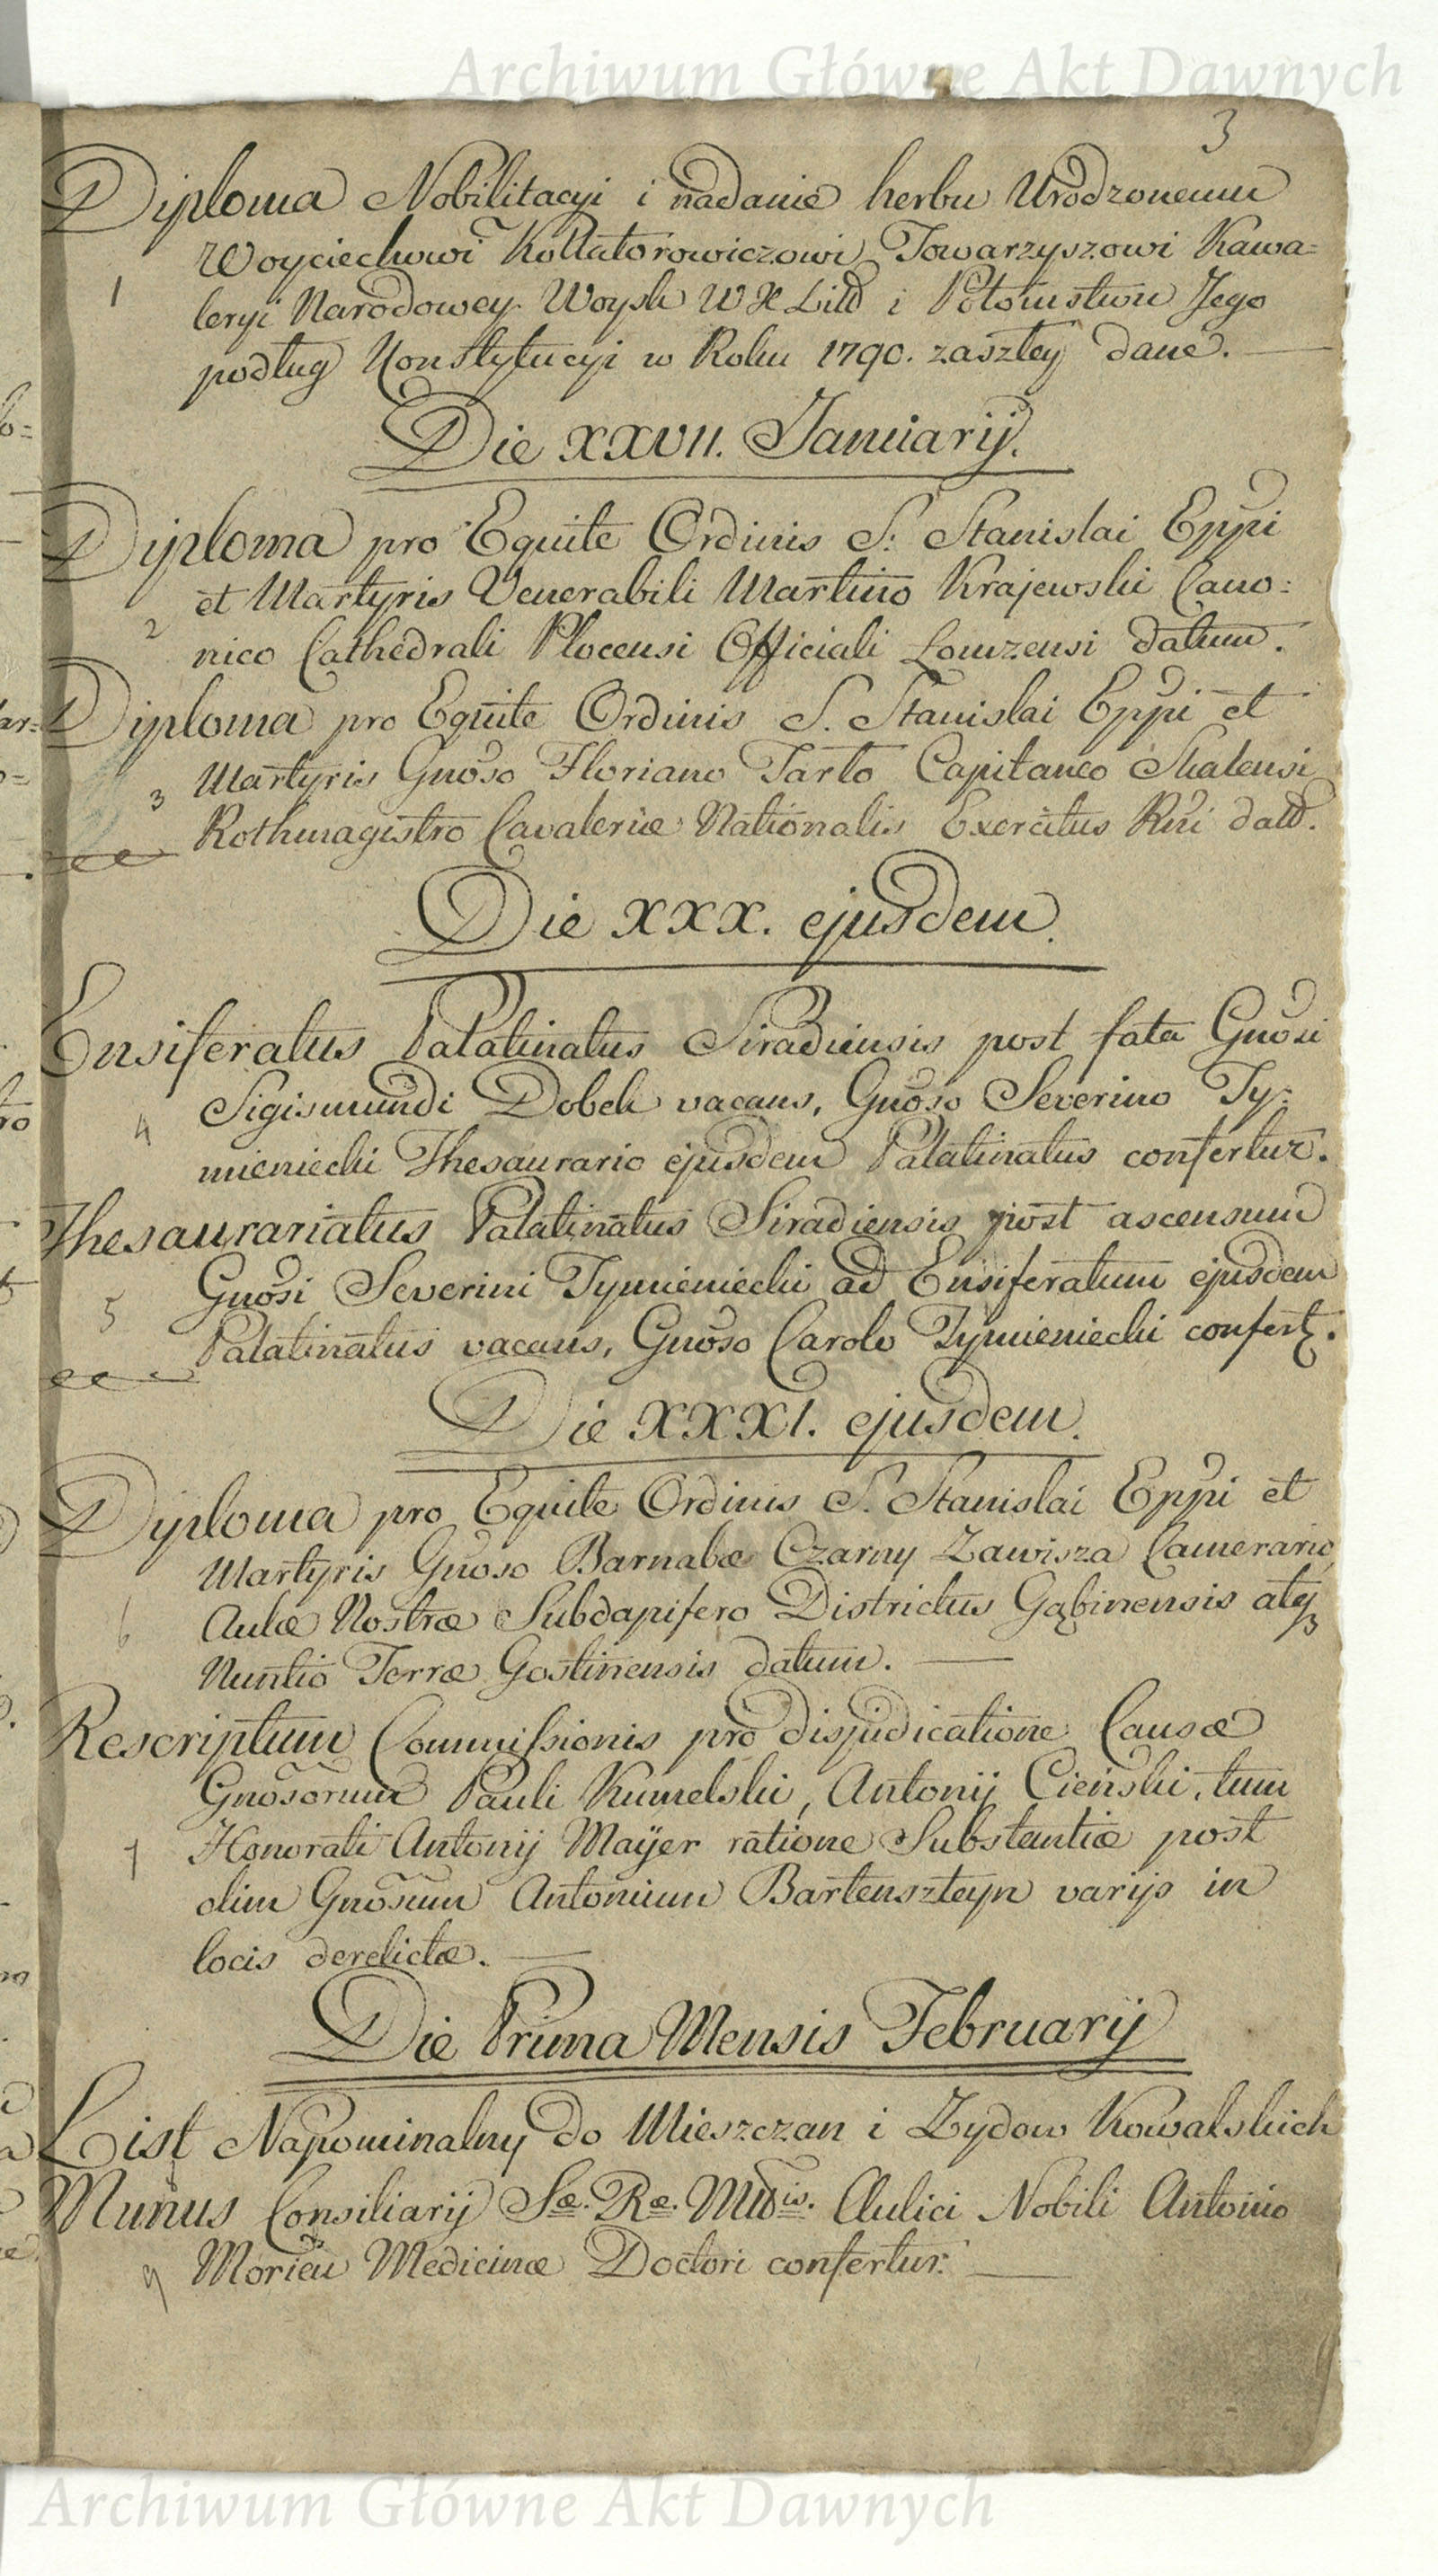 Archiwum Główne Akt Dawnych
3
Diploma Nobilitacyi i nadanie herbu Urodzonemu
Woyciechowi Kollatorowiczowi Towarzyszowi Kawa=
1
leryi Narodowey Woysk W X Litt i Potomstwu Jego
podług Konstytucyi w Roku 1790. zaszłey dane.
Die XXVII. Januarij.
Diploma pro Equite Ordinis S: Stanislai Eppi
et Martyris Venerabili Martino Krajewski Cano=
2
nico Cathedrali Plocensi Officiali Łomzensi datum.
Diploma pro Equite Ordinis S. Stanislai Eppi et
Martyris Gnoso Floriano Tarło Capitaneo Skalensi
3
Rothmagistro Cavaleriæ Nationalis Exercitus Rni datt.
Die XXX. ejusdem.
Ensiferatus Palatinatus Siradiensis post fata Gnosi
Sigismundi Dobek vacans, Gnoso Severino Ty=
4
mieniecki Thesaurario ejusdem Palatinatus confertur.
Thesaurariatus Palatinatus Siradiensis post ascensum
Gnosi Severini Tymieniecki ad Ensiferatum ejusdem
5
Palatinatus vacans, Gnoso Carolo Tymieniecki confert.
Die XXXI. ejusdem.
Diploma pro Equite Ordinis S. Stanislai Eppi et
Martyris Gnoso Barnabæ Czarny Zawisza Camerario
6
Aulæ Nostræ Subdapifero Districtus Gąbinensis atq3
Nuntio Terræ Gostinensis datum.
Rescriptum Commissionis pro disjudicatione Causæ
Gnosorum Pauli Kumelski, Antonij Cieński, tum
7
Honorati Antonij Mayer ratione Substantiæ post
olim Gnosum Antonium Bartenszteyn varijs in
locis derelictæ.
Die Prima Mensis Februarij
List Napominalny do Mieszczan i Zydow Kowalskich
Munus Consiliarij Sæ. Ræ. Mttis. Aulici Nobili Antonio
9
Medicinæ Doctori confertur.
Archiwum Główne Akt Dawnych